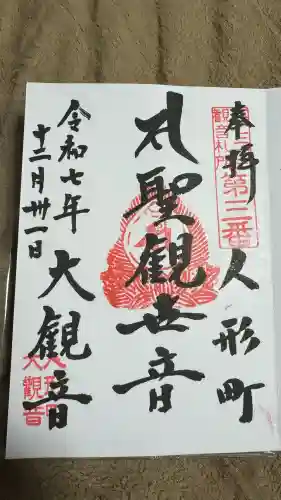 奉拝
人形町
聖観世音
令和七年
十二月卅一日
大観音
第三番
大観音